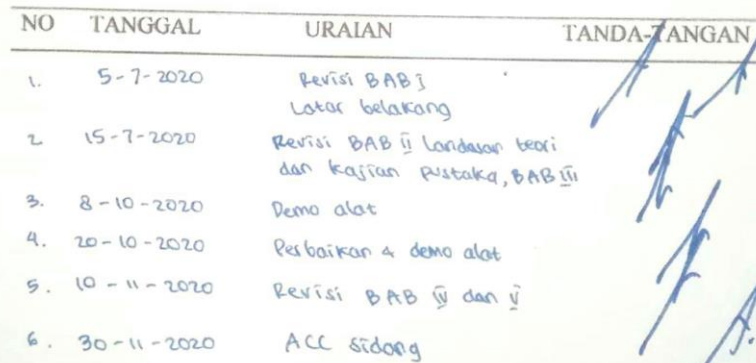 NO TANGGAL URAIAN TANDA-TANGAN
1. 5-7-2020 Revisi BAB I
Latar belakang
2 15-7-2020 Revisi BAB II Landasan teori
dan kajian pustaka, BAB III
3. 8-10-2020 Demo alat
4. 20-10-2020 Perbaikan & demo alat
5. 10-11-2020 Revisi BAB IV dan V
6. 30-11-2020 ACC sidang